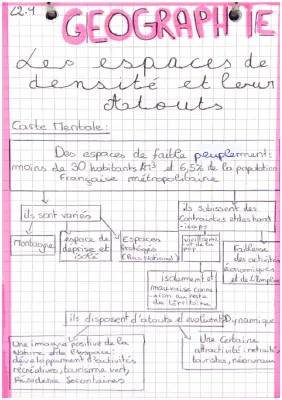 L2.4
GEOGRAPHIE
Les espaces de
densité et leur
Atouts
Carte Mentale:
Des espaces de faible peuplement:
moins de 30 habitants/km² et 6,5% de la population
Française métropolitaine
ils sont variés
ils subissent des
contraintes et des hand
-icaps
Montagne
espace de
deprise et
isolé
Espaces
protégés
(Parc National)
Vieillissement
et de la
Faiblesse
des activités
économiques
et de l'emploi
isolement et
mauvaise conne
-xion au reste
du territoire
ils disposent d'atouts et évoluent
Dynamique
Une image positive de la
Nature et de l'espace:
développement d'activités
récréatives, tourisme vert,
Résidence Secondaires
Une certaine
attractivité: retraités
touristes, néoruraux